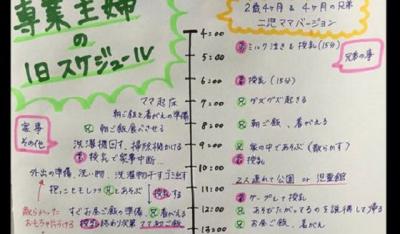 専業主婦
の
1日スケジュール
2歳4ヶ月 & 4ヶ月の兄弟
二児ママバージョン
4:00
弟 ミルク泣き & 授乳(15分)
兄弟の事
5:00
6:00
弟 授乳(15分)
7:00
ママ起床
兄 グズグズ起きる
朝ご飯と着がえの準備
家事
その他
8:00
兄 朝ご飯食べらせる
兄 朝ご飯、着がえ
9:00
洗濯機回す、掃除機かける
兄 家の中であそぶ(散らかす)
弟 授乳で家事中断…
10:00
弟 授乳
外出の準備、洗い物、洗濯物干す、ゴミ出す
2人連れて公園 or 児童館
抱っこもそしつつ 兄とあそぶ
授乳する
11:00
弟 ケープして授乳
散らかった
おもちゃ片付ける
すぐお昼ご飯の準備 兄着がえる
12:00
兄 あそびたがってるのを説得して帰る
授乳終わり次第 ママ朝ご飯
13:00
兄 お昼ご飯、着がえ